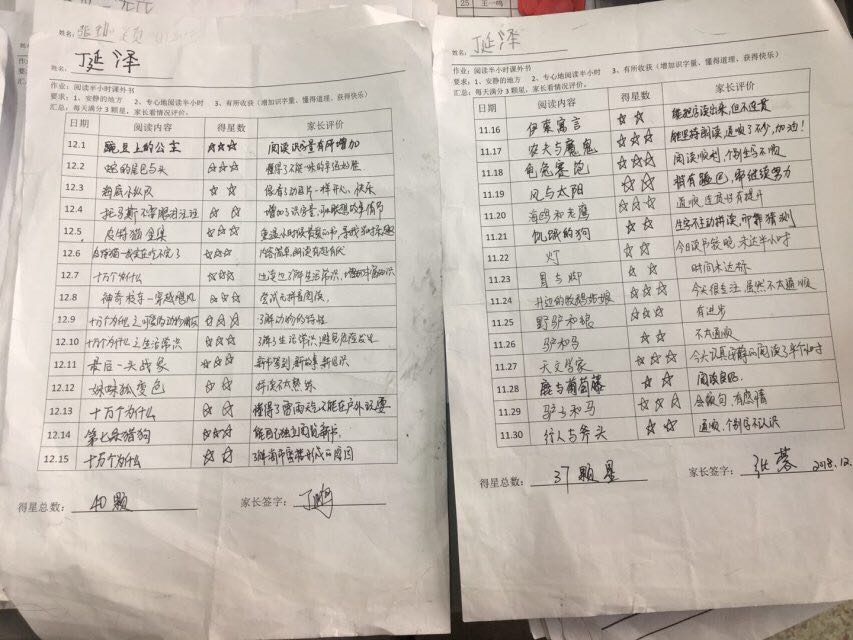 25 王一鸣
姓名:
姓名: 丁延泽
作业: 阅读半小时课外书
要求: 1、安静的地方 2、专心地阅读半小时 3、有所收获(增加识字量、懂得道理、获得快乐)
汇总: 每天满分3颗星, 家长看情况评价。
日期 阅读内容 得星数 家长评价
12.1 豌豆上的公主 ☆☆☆ 阅读识字量有所增加
12.2 蛇的尾巴与头 ☆☆☆ 懂得了不能一味的争强好胜
12.3 海底小纵队 ☆ ☆ 像看动画片一样开心、快乐
12.4 托马斯不掌眼闭注班 ☆ ☆ 增加了识字量,
12.5 皮特猫全集 ☆☆☆
12.6 皮特猫 ☆☆ 内容简单, 阅读有想有伏
12.7 十万个为什么 ☆☆☆ 生活常识,
12.8 神奇校车-穿越飓风 ☆☆☆ 尝试无拼音阅读,
12.9 十万个为什么之可爱的动物朋友 ☆☆☆ 了解动物的特性
12.10 十万个为什么之生活常识 ☆☆☆ 了解了生活常识, 避免危险发生
12.11 最后一头战象 ☆☆☆ 新书驾到, 新故事新知识
12.12 妹妹狐变色 ☆ ☆ 拼读不太熟练
12.13 十万个为什么 ☆☆☆ 懂得了雷雨天不能在户外玩耍
12.14 第七条猎狗 ☆☆☆ 能自己独立阅读新书
12.15 十万个为什么 ☆☆ 了解海市蜃楼形成的原因
得星总数: 40颗 家长签字: 丁鹏
姓名: 丁延泽
作业: 阅读半小时课外书
要求: 1、安静的地方 2、专心地阅读半小时 3、有所收获(增加识字量、懂得道理、获得快乐)
汇总: 每天满分3颗星, 家长看情况评价。
日期 阅读内容 得星数 家长评价
11.16 伊索寓言 ☆ ☆ 能把字读出来, 但不连贯
11.17 农夫与魔鬼 ☆☆☆ 能坚持朗读, 通顺了不少, 加油!
11.18 龟兔赛跑 ☆☆☆ 阅读顺利, 个别生字不顺
11.19 风与太阳 ☆☆ 稍有脸色, 需继续努力
11.20 海鸥和老鹰 ☆☆☆ 通顺、连贯好有提升
11.21 饥饿的狗 ☆☆ 生字不主动拼读, 即靠猜测
11.22 灯 ☆☆ 今日读书较晚, 未达半小时
11.23 胃与脚 ☆ ☆ 时间未达标
11.24 井边的牧羊姑娘 ☆☆☆ 今天很专注, 虽然不太通顺
11.25 野驴和狼 ☆☆☆ 有进步
11.26 驴和马 ☆☆ 不太通顺
11.27 天文学家 ☆☆☆ 今天认真安静的阅读了半个小时
11.28 鹿与葡萄藤 ☆ ☆ 阅读良好.
11.29 驴子和马 ☆☆☆ 会断句, 有感情
11.30 行人与斧头 ☆☆ 通顺, 个别字不认识
得星总数: 37颗星 家长签字: 张蓉 2018.12.